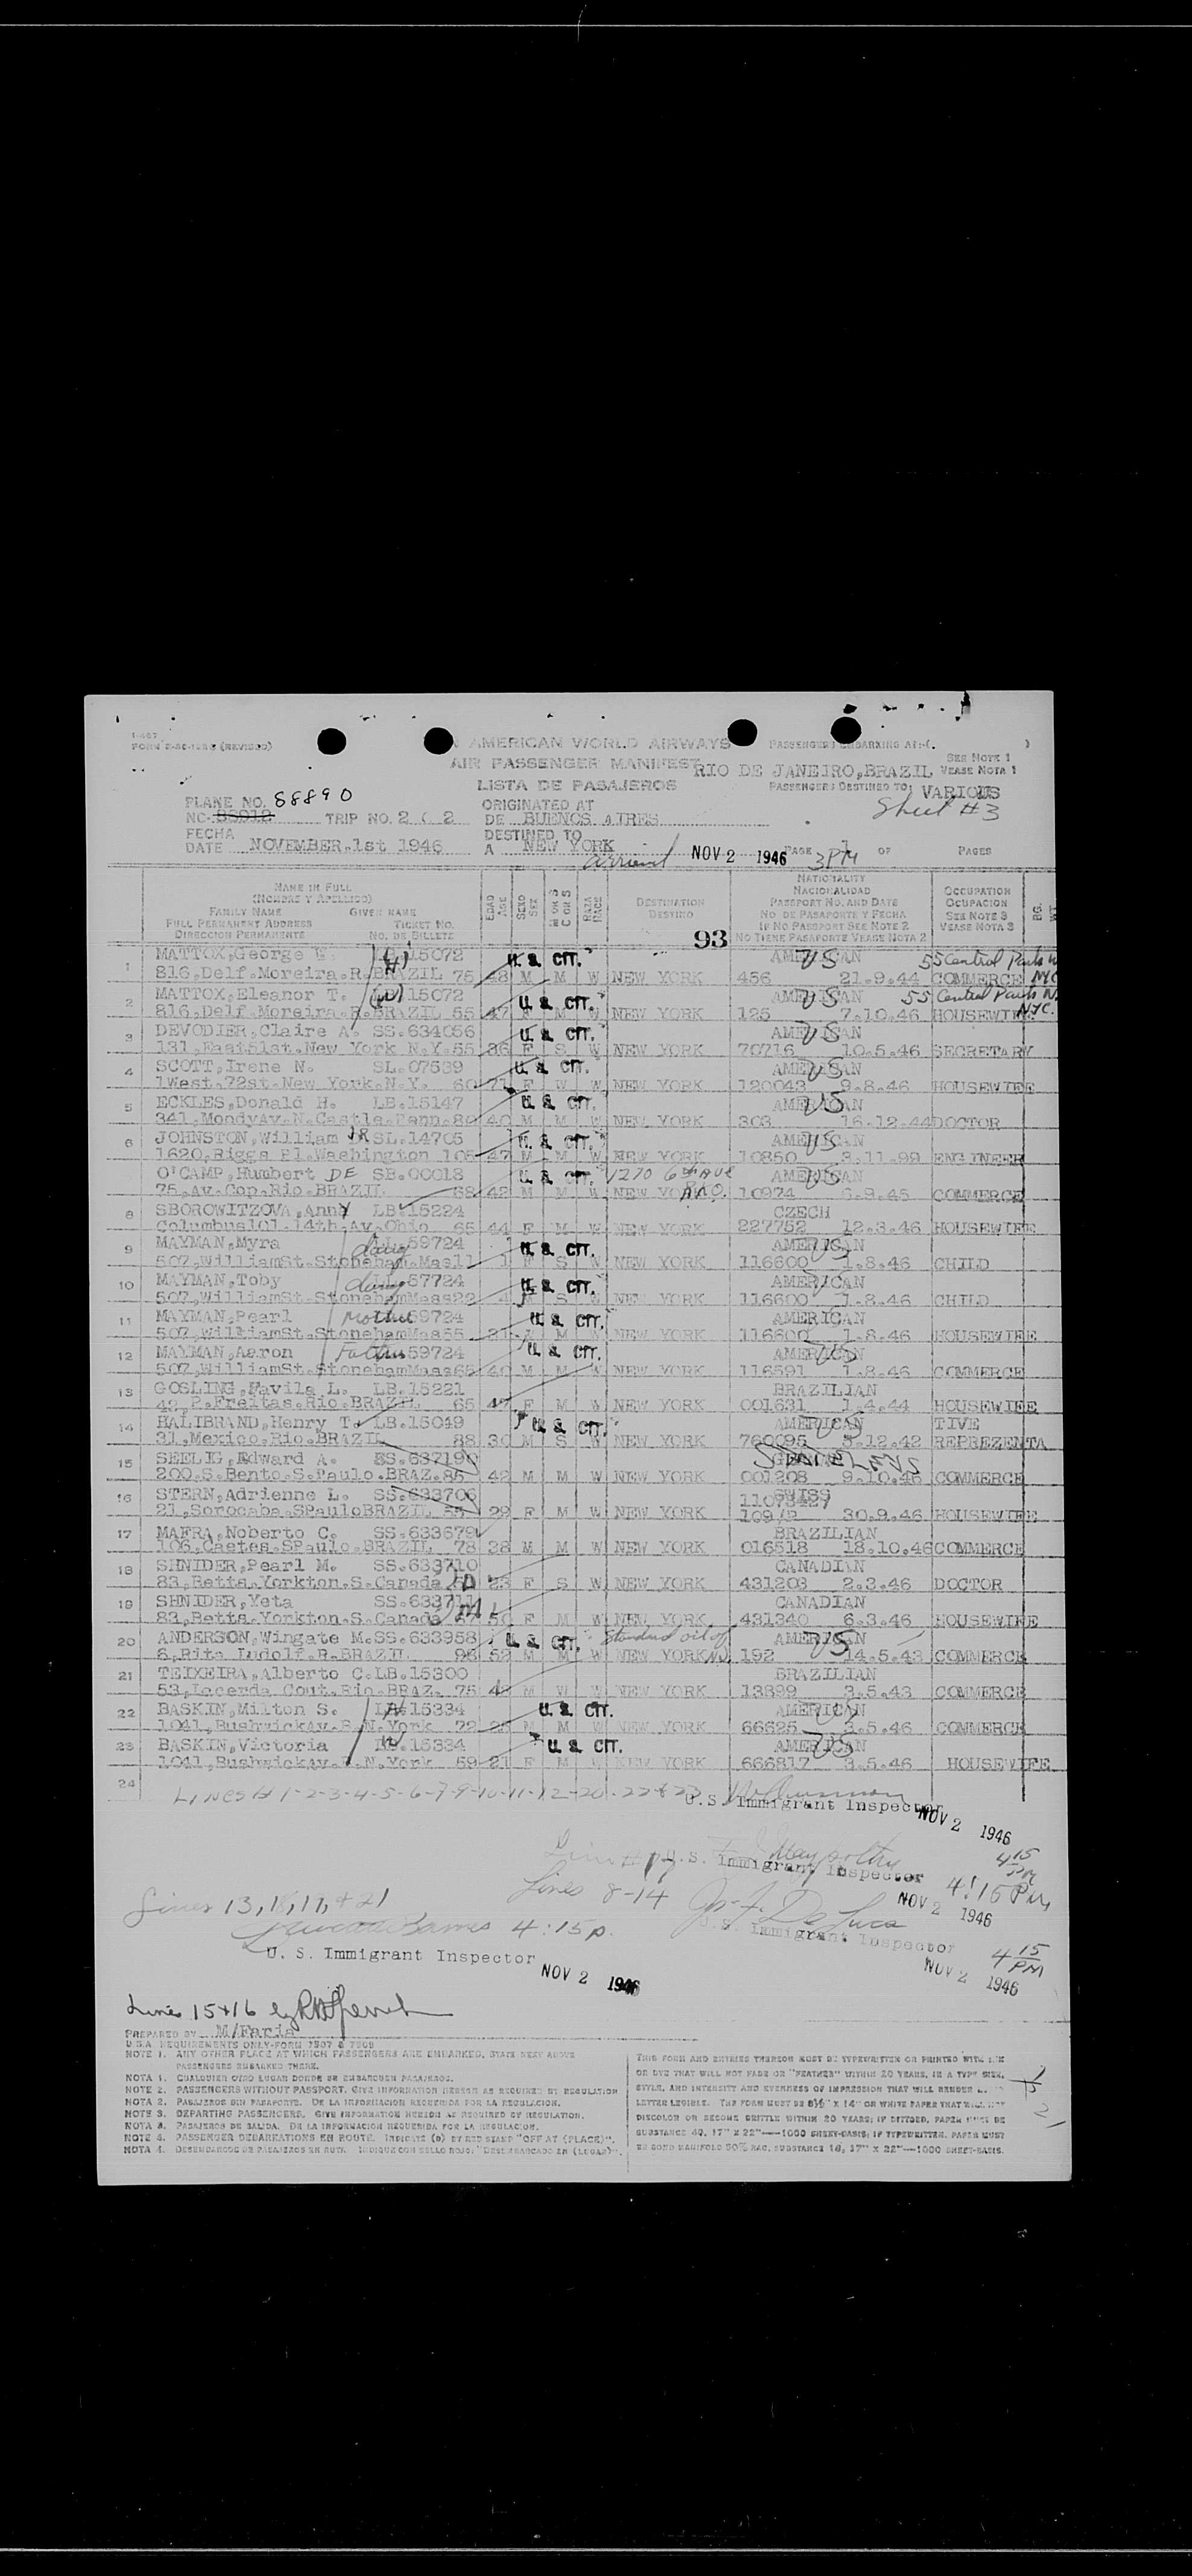 I-467
FORM (REVISED)
AMERICAN WORLD AIRWAYS
AIR PASSENGER MANIFEST
LISTA DE PASAJEROS
PASSENGERS EMBARKING AT
RIO DE JANEIRO, BRAZIL
SEE NOTE 1
VEASE NOTA 1
PASSENGERS DESTINED TO: VARIOUS
Sheet #3
PLANE NO. 88890
NC- TRIP NO. 2 2
ORIGINATED AT
DE BUENOS AIRES
FECHA
DATE NOVEMBER.1st 1946
DESTINED TO
A NEW YORK
arrived NOV 2 1946 3PM
PAGE 1 OF PAGES
NAME IN FULL
(NOMBRE Y APELLIDO)
FAMILY NAME GIVEN NAME
FULL PERMANENT ADDRESS TICKET NO.
DIRECCION PERMANENTE NO. DE BILLETE
EDAD AGE
SEXO SEX
RAZA RACE
DESTINATION
DESTINO
93
NATIONALITY
NACIONALIDAD
PASSPORT NO. AND DATE
NO. DE PASAPORTE Y FECHA
IF NO PASSPORT SEE NOTE 2
NO TIENE PASAPORTE VEASE NOTA 2
OCCUPATION
OCUPACION
SEE NOTE 3
VEASE NOTA 3
1 MATTOX,George (H) 15072 U. S. CIT. AMERICAN US 55 Central Park W
816,Delf.Moreira.R.BRAZIL 75 48 M M W NEW YORK 456 21.9.44 COMMERCE NYC
2 MATTOX,Eleanor T. (W) 15072 U. S. CIT. AMERICAN US 55 Central Park
816,Delf.Moreira.R.BRAZIL 55 47 F M W NEW YORK 125 7.10.46 HOUSEWIFE NYC.
3 DEVODIER,Claire A. SS.634056 U. S. CIT. AMERICAN US
131,East51st.New York N.Y.55 36 F S W NEW YORK 70716 10.5.46 SECRETARY
4 SCOTT,Irene N. SL.07539 U. S. CIT. AMERICAN US
1West.72st.New York.N.Y. 60 71 F W W NEW YORK 120043 9.8.46 HOUSEWIFE
5 ECKLES,Donald H. LB.15147 U. S. CIT. AMERICAN US
341,MoodyAv.N.Castle.Penn.89 40 M M W NEW YORK 303 16.12.44 DOCTOR
6 JOHNSTON,William JR SL.14705 U. S. CIT. AMERICAN US
1620,Riggs Pl.Washington 105 47 M M W NEW YORK 10850 3.11.99 ENGINEER
O'CAMP,Humbert DE SB.00013 U. S. CIT. 1270 6th AVE AMERICAN US
75,Av.Cop.Rio.BRAZIL 68 42 M M W NEW YORK 10974 6.9.45 COMMERCE
8 SBOROWITZOVA,Anny LB.15224 CZECH
Columbus101.14th.Av.Ohio 65 44 F M W NEW YORK 227752 12.3.46 HOUSEWIFE
9 MAYMAN,Myra daug 59724 U. S. CIT. AMERICAN US
507,WilliamSt.Stoneham.Mas11 1 F S W NEW YORK 116600 1.8.46 CHILD
10 MAYMAN,Toby daug 57724 U. S. CIT. AMERICAN
507,WilliamSt.StonehamMass22 4 S W NEW YORK 116600 1.8.46 CHILD
11 MAYMAN,Pearl mother 59724 U. S. CIT. AMERICAN
507,WilliamSt.StonehamMas55 31 M W NEW YORK 116600 1.8.46 HOUSEWIFE
12 MAYMAN,Aaron Father 59724 U. S. CIT. AMERICAN US
507,WilliamSt.StonehamMass65 40 M M W NEW YORK 116591 1.8.46 COMMERCE
13 GOSLING,Favila L. LB.15221 BRAZILIAN
42,P.Freitas.Rio.BRAZIL 65 47 F M W NEW YORK 001631 1.4.44 HOUSEWIFE
14 HALIBRAND,Henry T. LB.15049 U. S. CIT. AMERICAN US TIVE
31,Mexico.Rio.BRAZIL 88 30 M S W NEW YORK 760095 5.12.42 REPREZENTA
15 SEELIG,Edward A. SS.637190 STATELESS
200,S.Bento.S.Paulo.BRAZ.85 42 M M W NEW YORK 001208 9.10.46 COMMERCE
16 STERN,Adrienne L. SS.633706 SWISS
21,Sorocaba.SPauloBRAZIL 55 29 F M W NEW YORK 30.9.46 HOUSEWIFE
17 MAFRA,Noberto C. SS.633679 BRAZILIAN
106,Caetes.SPaulo.BRAZIL 78 28 M M W NEW YORK 016518 18.10.46 COMMERCE
18 SHNIDER,Pearl M. SS.633710 CANADIAN
83,Betts.Yorkton.S.Canada 23 F S W NEW YORK 431203 2.3.46 DOCTOR
19 SHNIDER,Yeta SS.633711 CANADIAN
83,Betts.Yorkton.S.Canada 67 50 F M W NEW YORK 431340 6.3.46 HOUSEWIFE
20 ANDERSON,Wingate M.SS.633958 U. S. CIT. Standard oil of AMERICAN US
6,Rita Ludolf.R.BRAZIL 98 52 M M W NEW YORK NJ 192 14.5.43 COMMERCE
21 TEIXEIRA,Alberto C.LB.15300 BRAZILIAN
53,Lacerda Cout.Rio.BRAZ. 75 M W W NEW YORK 13899 3.5.43 COMMERCE
22 BASKIN,Milton S. H 15334 U. S. CIT. AMERICAN
1041,Bushwickav.B.N.York 72 M M W NEW YORK 66625 3.5.46 COMMERCE
23 BASKIN,Victoria W 15334 U. S. CIT. AMERICAN US
1041,Bushwickav.B.N.York 59 21 F M W NEW YORK 666817 3.5.46 HOUSEWIFE
24
Lines # 1-2-3-4-5-6-7-9-10-11-12-20-22&23
U.S. Immigrant Inspector
NOV 2 1946
4 15 PM
Line # 17 U.S. Immigrant Inspector
4:15 PM
Lines 8-14 J. F. De Luca
NOV 2 1946
U.S. Immigrant Inspector
4 15 PM
NOV 2 1946
Lines 13, 18, 19, & 21
4:15p.
U. S. Immigrant Inspector
NOV 2 1946
Lines 15+16 by
PREPARED BY M/Faria
U.S.A REQUIREMENTS ONLY-FORM 7507 & 7509
NOTE 1. ANY OTHER PLACE AT WHICH PASSENGERS ARE EMBARKED, STATE NEXT ABOVE
PASSENGERS EMBARKED THERE.
NOTA 1. CUALQUIER OTRO LUGAR DONDE SE EMBARQUEN PASAJEROS.
NOTE 2. PASSENGERS WITHOUT PASSPORT. GIVE INFORMATION HEREON AS REQUIRED BY REGULATION
NOTA 2. PASAJEROS SIN PASAPORTE. DE LA INFORMACION REQUERIDA POR LA REGULACION.
NOTE 3. DEPARTING PASSENGERS. GIVE INFORMATION HEREON AS REQUIRED BY REGULATION.
NOTA 3. PASAJEROS DE SALIDA. DE LA INFORMACION REQUERIDA POR LA REGULACION.
NOTE 4. PASSENGER DEBARKATIONS EN ROUTE. INDICATE (B) BY RED STAMP "OFF AT (PLACE)".
NOTA 4. DESEMBARCOS DE PASAJEROS EN RUTA. INDIQUE CON SELLO ROJO: "DESEMBARCADO EN (LUGAR)".
THIS FORM AND ENTRIES THEREON MUST BE TYPEWRITTEN OR PRINTED WITH INK
OR DYE THAT WILL NOT FADE OR "FEATHER" WITHIN 20 YEARS, IN A TYPE SIZE,
STYLE, AND INTENSITY AND EVENNESS OF IMPRESSION THAT WILL RENDER
LETTER LEGIBLE. THE FORM MUST BE 8½" X 14" OR WHITE PAPER THAT WILL NOT
DISCOLOR OR BECOME BRITTLE WITHIN 20 YEARS; IF DITTOED, PAPER MUST BE
SUBSTANCE 40, 17" X 22"—1000 SHEET-BASIS; IF TYPEWRITTEN, PAPER MUST
BE BOND MANIFOLD 50% RAG, SUBSTANCE 16, 17" X 22"—1000 SHEET-BASIS.